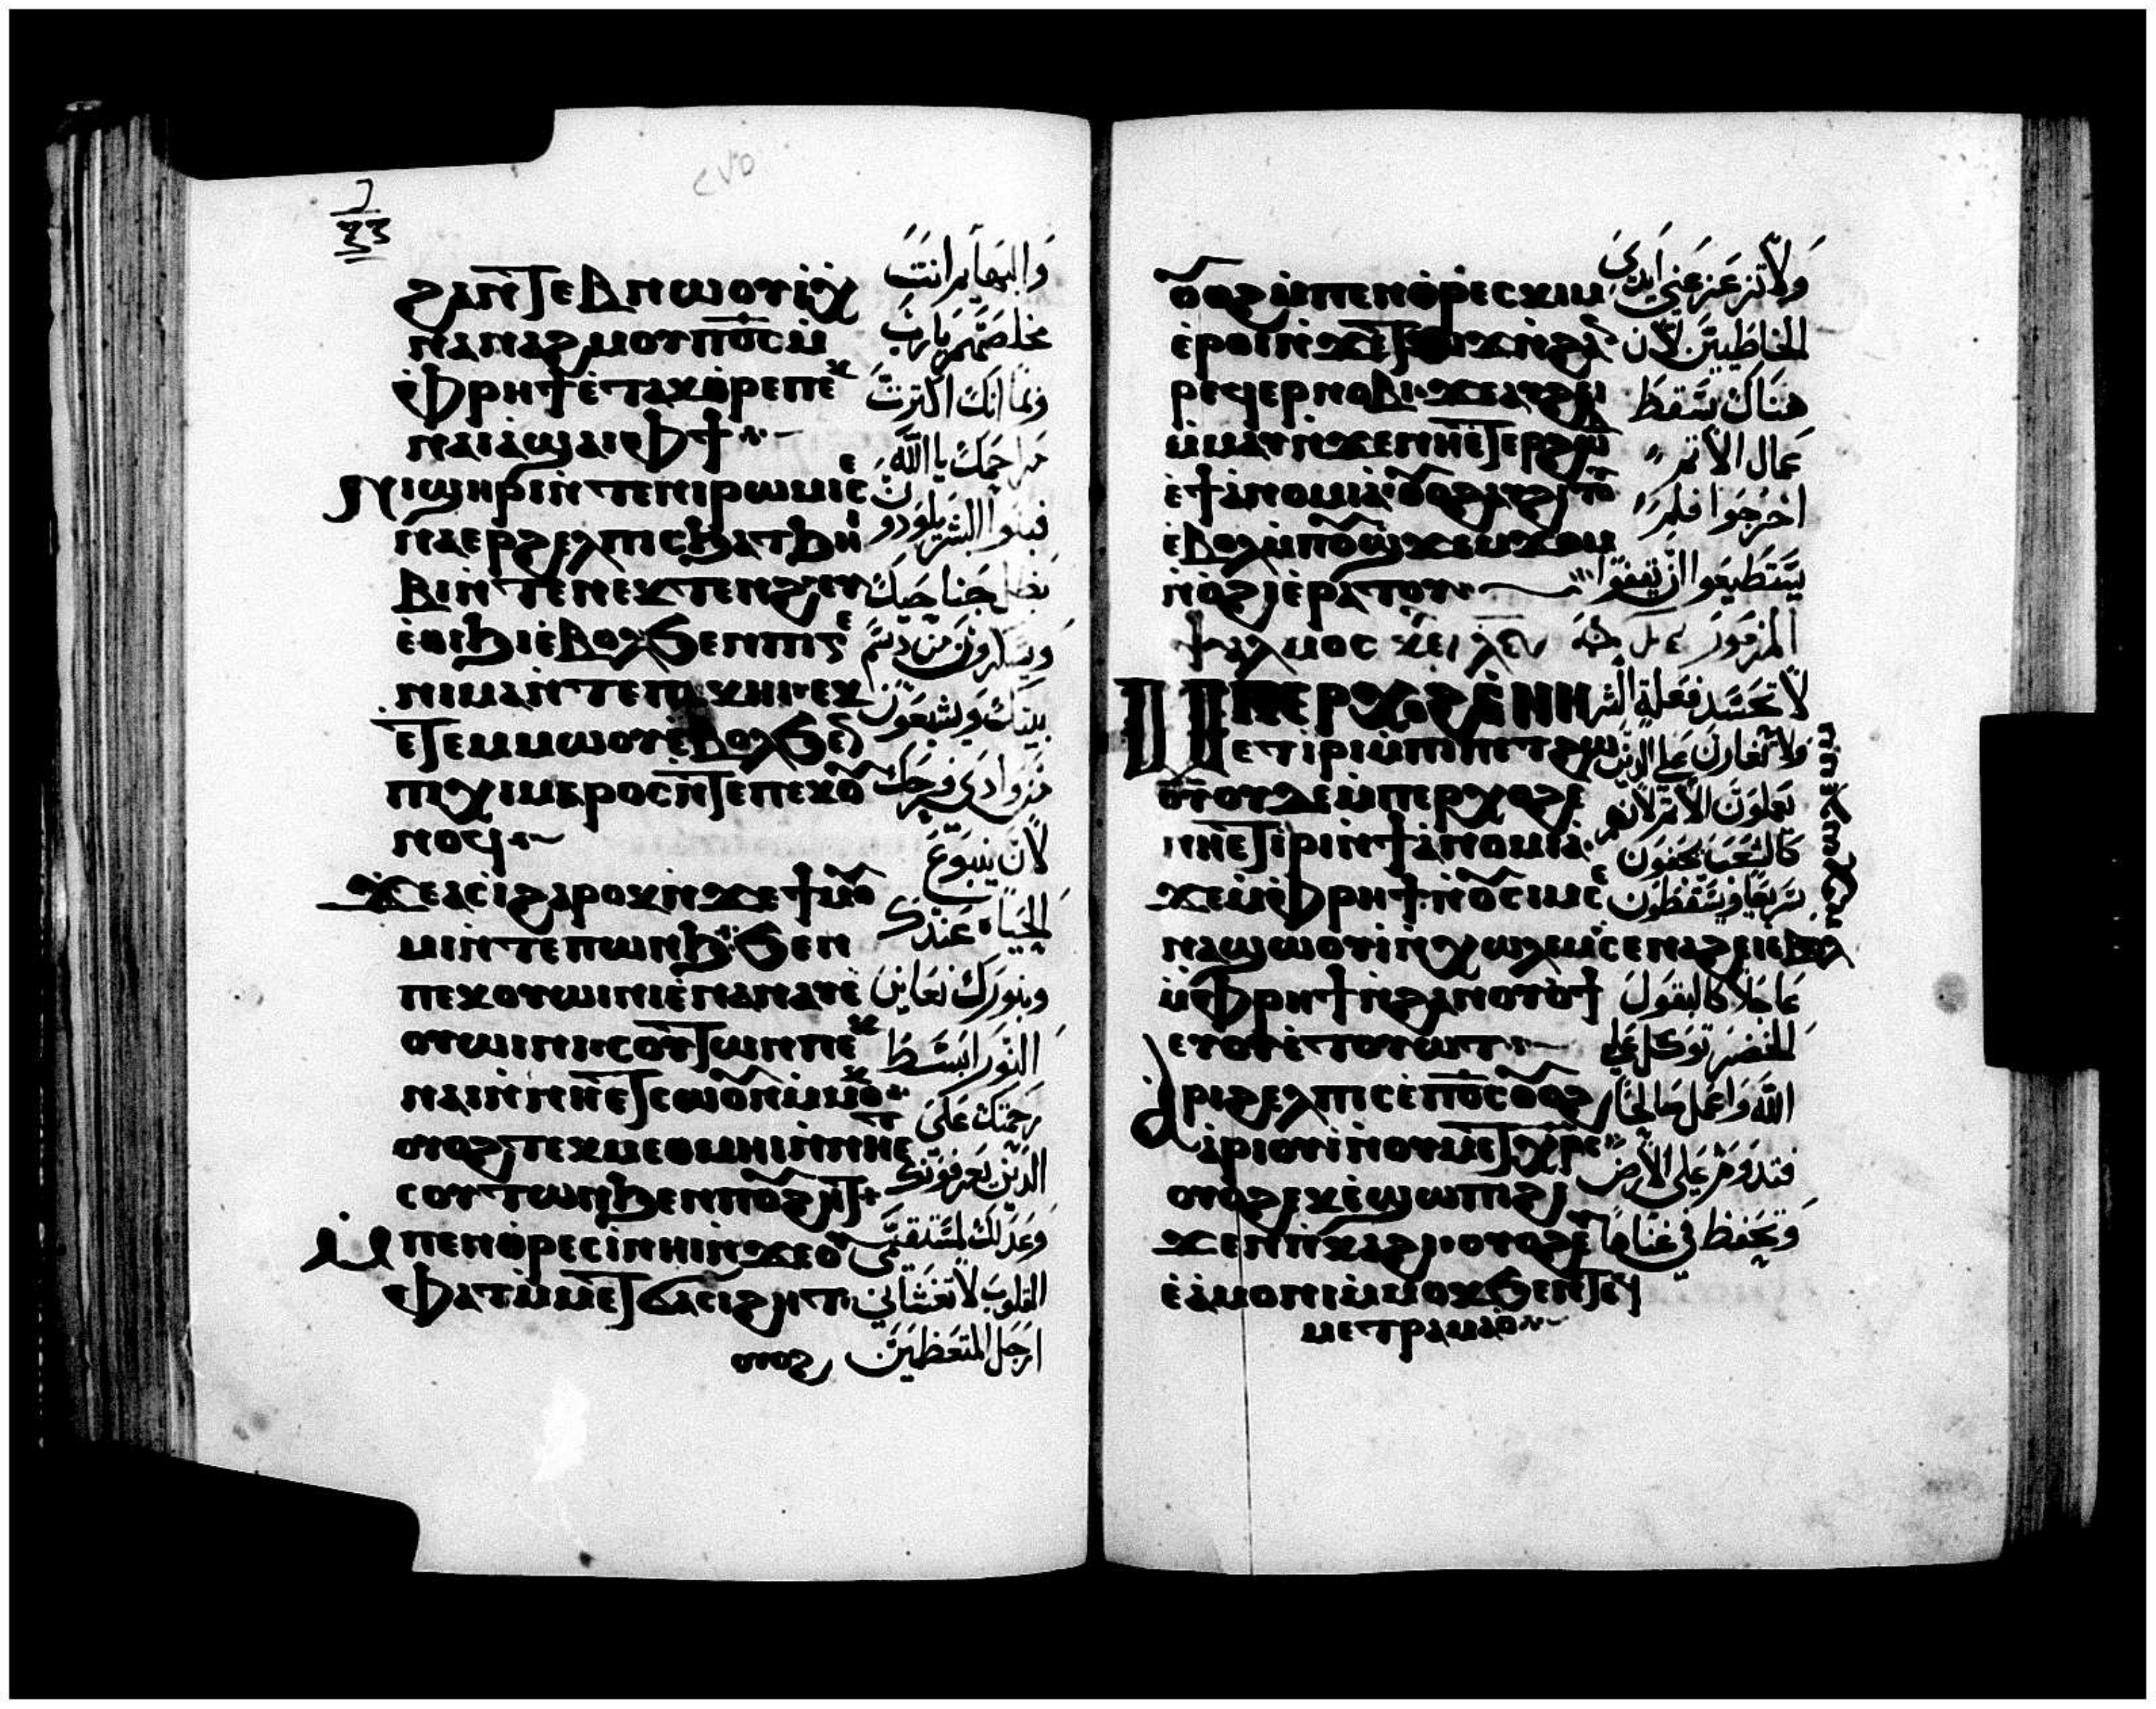 ϩⲁⲛⲧⲉⲃⲛⲱⲟⲩⲓ ⲭ
ⲛⲁⲛⲁϩⲙⲟⲩ ⲡⲟ̅ⲥ̅ ⲙ̀
ⲫⲣⲏϯ ⲉ̀ⲧⲁⲕⲑ̀ⲣⲉ ⲡⲉⲕ
ⲛⲁⲓ ⲁ̀ϣⲁⲓ ⲫϯ
ⲛⲓϣⲏⲣⲓ ⲛ̀ⲧⲉ ⲛⲓⲣⲱⲙⲓ ⲉ̀
ⲛⲁⲉⲣϩⲉⲗⲡⲓⲥ ϧⲁ ⲧϧⲏⲓ
ⲃⲓ ⲛ̀ⲧⲉ ⲛⲉⲕⲧⲉⲛϩ ⲉⲩ
ⲉ̀ⲑⲓϧⲓ ⲉ̀ⲃⲟⲗ ϧⲉⲛ ⲡⲓϭ
ⲛⲓ ⲙⲁ ⲛ̀ⲧⲉ ⲡⲉⲕⲏⲓ ⲉⲕ
ⲉ̀ⲧⲥⲉⲙⲙⲱⲟⲩ ⲉ̀ⲃⲟⲗ ϧⲉⲛ
ⲡⲓⲭⲓⲙⲁⲣⲟⲥ ⲛ̀ⲧⲉ ⲡⲉⲕⲟⲩ
ⲛⲟϥ
ϫⲉ ⲁⲥⲓϩⲁⲣⲟⲕ ⲛ̀ϫⲉ ϯⲙⲟⲩ
ⲙⲓ ⲛ̀ⲧⲉ ⲡⲱⲛϧ ϧⲉⲛ
ⲡⲉⲕⲟⲩⲱⲓⲛⲓ ⲉ̀ⲛⲁⲛⲁⲩ ⲉ̀
ⲟⲩⲱⲓⲛⲓ ⲥⲟⲩⲧⲱⲛ ⲡⲉⲕ
ⲛⲁⲓ ⲛ̀ⲛⲏⲉ̀ⲧⲥⲱⲟⲩⲛ ⲙ̀ⲙⲟⲕ
ⲟⲩⲟϩ ⲧⲉⲕⲙⲉⲑⲙⲏⲓ ⲛ̀ⲛⲏⲉⲧ
ⲥⲟⲩⲧⲱⲛ ϧⲉⲛ ⲡⲟⲩϩⲏⲧ
ⲙ̀ⲡⲉⲛⲑ̀ⲣⲉⲥⲓ̀ ⲛⲏⲓ ⲛ̀ϫⲉ ⲟⲩ
ⲫⲁⲧ ⲙ̀ⲙⲉⲧϭⲁⲥⲓϩⲏⲧ
ⲟⲩⲟϩ
وَالبهايم انتَ
مخلصهم يارب
وكما انك اكثرت
مراحمك يا الله
فبنوا البشر يلودون
بظل جناحيك
ويسكرون من دسم
بيتك ويشبعون
من وادي فرحك
لان ينبوع
الحياه عندك
وبنورك نعاين
النور ابسط
رحمتك على
الذين يعرفونك
وعدلك لمستقيمي
القلوب لا تغشاني
ارجل المتعظمين
ⲟⲩⲟϩ ⲙ̀ⲡⲉⲛⲑ̀ⲣⲉⲥⲕⲓⲙ
ⲉ̀ⲣⲟⲓ ⲛ̀ϫⲉ ⲧϫⲓϫ ⲛ̀ϩⲁⲛ
ⲣⲉϥⲉⲣⲛⲟⲃⲓ ϫⲉ ⲁⲩϩⲉⲓ
ⲙ̀ⲙⲁⲩ ⲛ̀ϫⲉ ⲛⲏⲉⲧⲉⲣϩⲱⲃ
ⲉ̀ϯⲁ̀ⲛⲟⲙⲓⲁ ⲟⲩⲟϩ ⲁⲩϩⲓⲧⲟⲩ
ⲉ̀ⲃⲟⲗ ⲙ̀ⲡⲟⲩϣϫⲉⲙϫⲟⲙ
ⲛ̀ⲟ̀ϩⲓ ⲉ̀ⲣⲁⲧⲟⲩ
ⲯⲁⲗⲙⲟⲥ
ⲙ̀ⲡⲉⲣⲭⲟϩ ⲉ̀ⲛⲏ
ⲉⲧⲓⲣⲓ ⲙ̀ⲡⲓⲡⲉⲧϩⲱ
ⲟⲩⲟⲩⲇⲉ ⲙ̀ⲡⲉⲣⲭⲟϩ ⲉ̀
ⲛⲏⲉⲧⲓⲣⲓ ⲛ̀ϯⲁ̀ⲛⲟⲙⲓⲁ
ϫⲉ ⲙ̀ⲫⲣⲏϯ ⲛ̀ⲟⲩⲥⲓⲙ ⲥⲉ
ⲛⲁϣⲱⲟⲩⲓ ⲛ̀ⲭⲱⲗⲉⲙ ⲥⲉⲛⲁϩⲉⲓ ⲉ̀ⲃⲟⲗ
ⲙ̀ⲫⲣⲏϯ ⲛ̀ϩⲁⲛⲟⲩⲟϯ
ⲉⲩⲟⲩⲉⲧⲟⲩⲱⲧ
ⲁ̀ⲣⲓϩⲉⲗⲡⲓⲥ ⲉ̀ⲡⲟ̅ⲥ̅ ⲟⲩⲟϩ
ⲁ̀ⲣⲓⲟⲩⲓ̀ ⲛ̀ⲟⲩⲙⲉⲧⲭⲣⲉ
ⲟⲩⲟϩ ⲉⲕⲉ̀ϣⲱⲡⲓ ϩⲓ
ϫⲉⲛ ⲡⲓⲕⲁϩⲓ ⲟⲩⲟϩ ⲉ
ⲉ̀ⲁ̀ⲙⲟⲛⲓ ⲙ̀ⲙⲟⲕ ϧⲉⲛ ⲧⲉϥ
ⲙⲉⲧⲣⲁⲙⲁⲟ̀
ولا تزعزعني ايدي
الخاطيين لان
هناك سقط
عمال الاثم
اخرجوا فلم
يستطيعوا ان يقفوا
المزمور
لا تحسد فعلة الشر
ولا تغارن على الذين
يعملون الاثم لانهم
كالعشب يجفون
سريعا ويسقطون
عاجلا كالبقول
الخضر توكل على
الله واعمل صالحا
فتدوم على الارض
وتحفظ في غناها